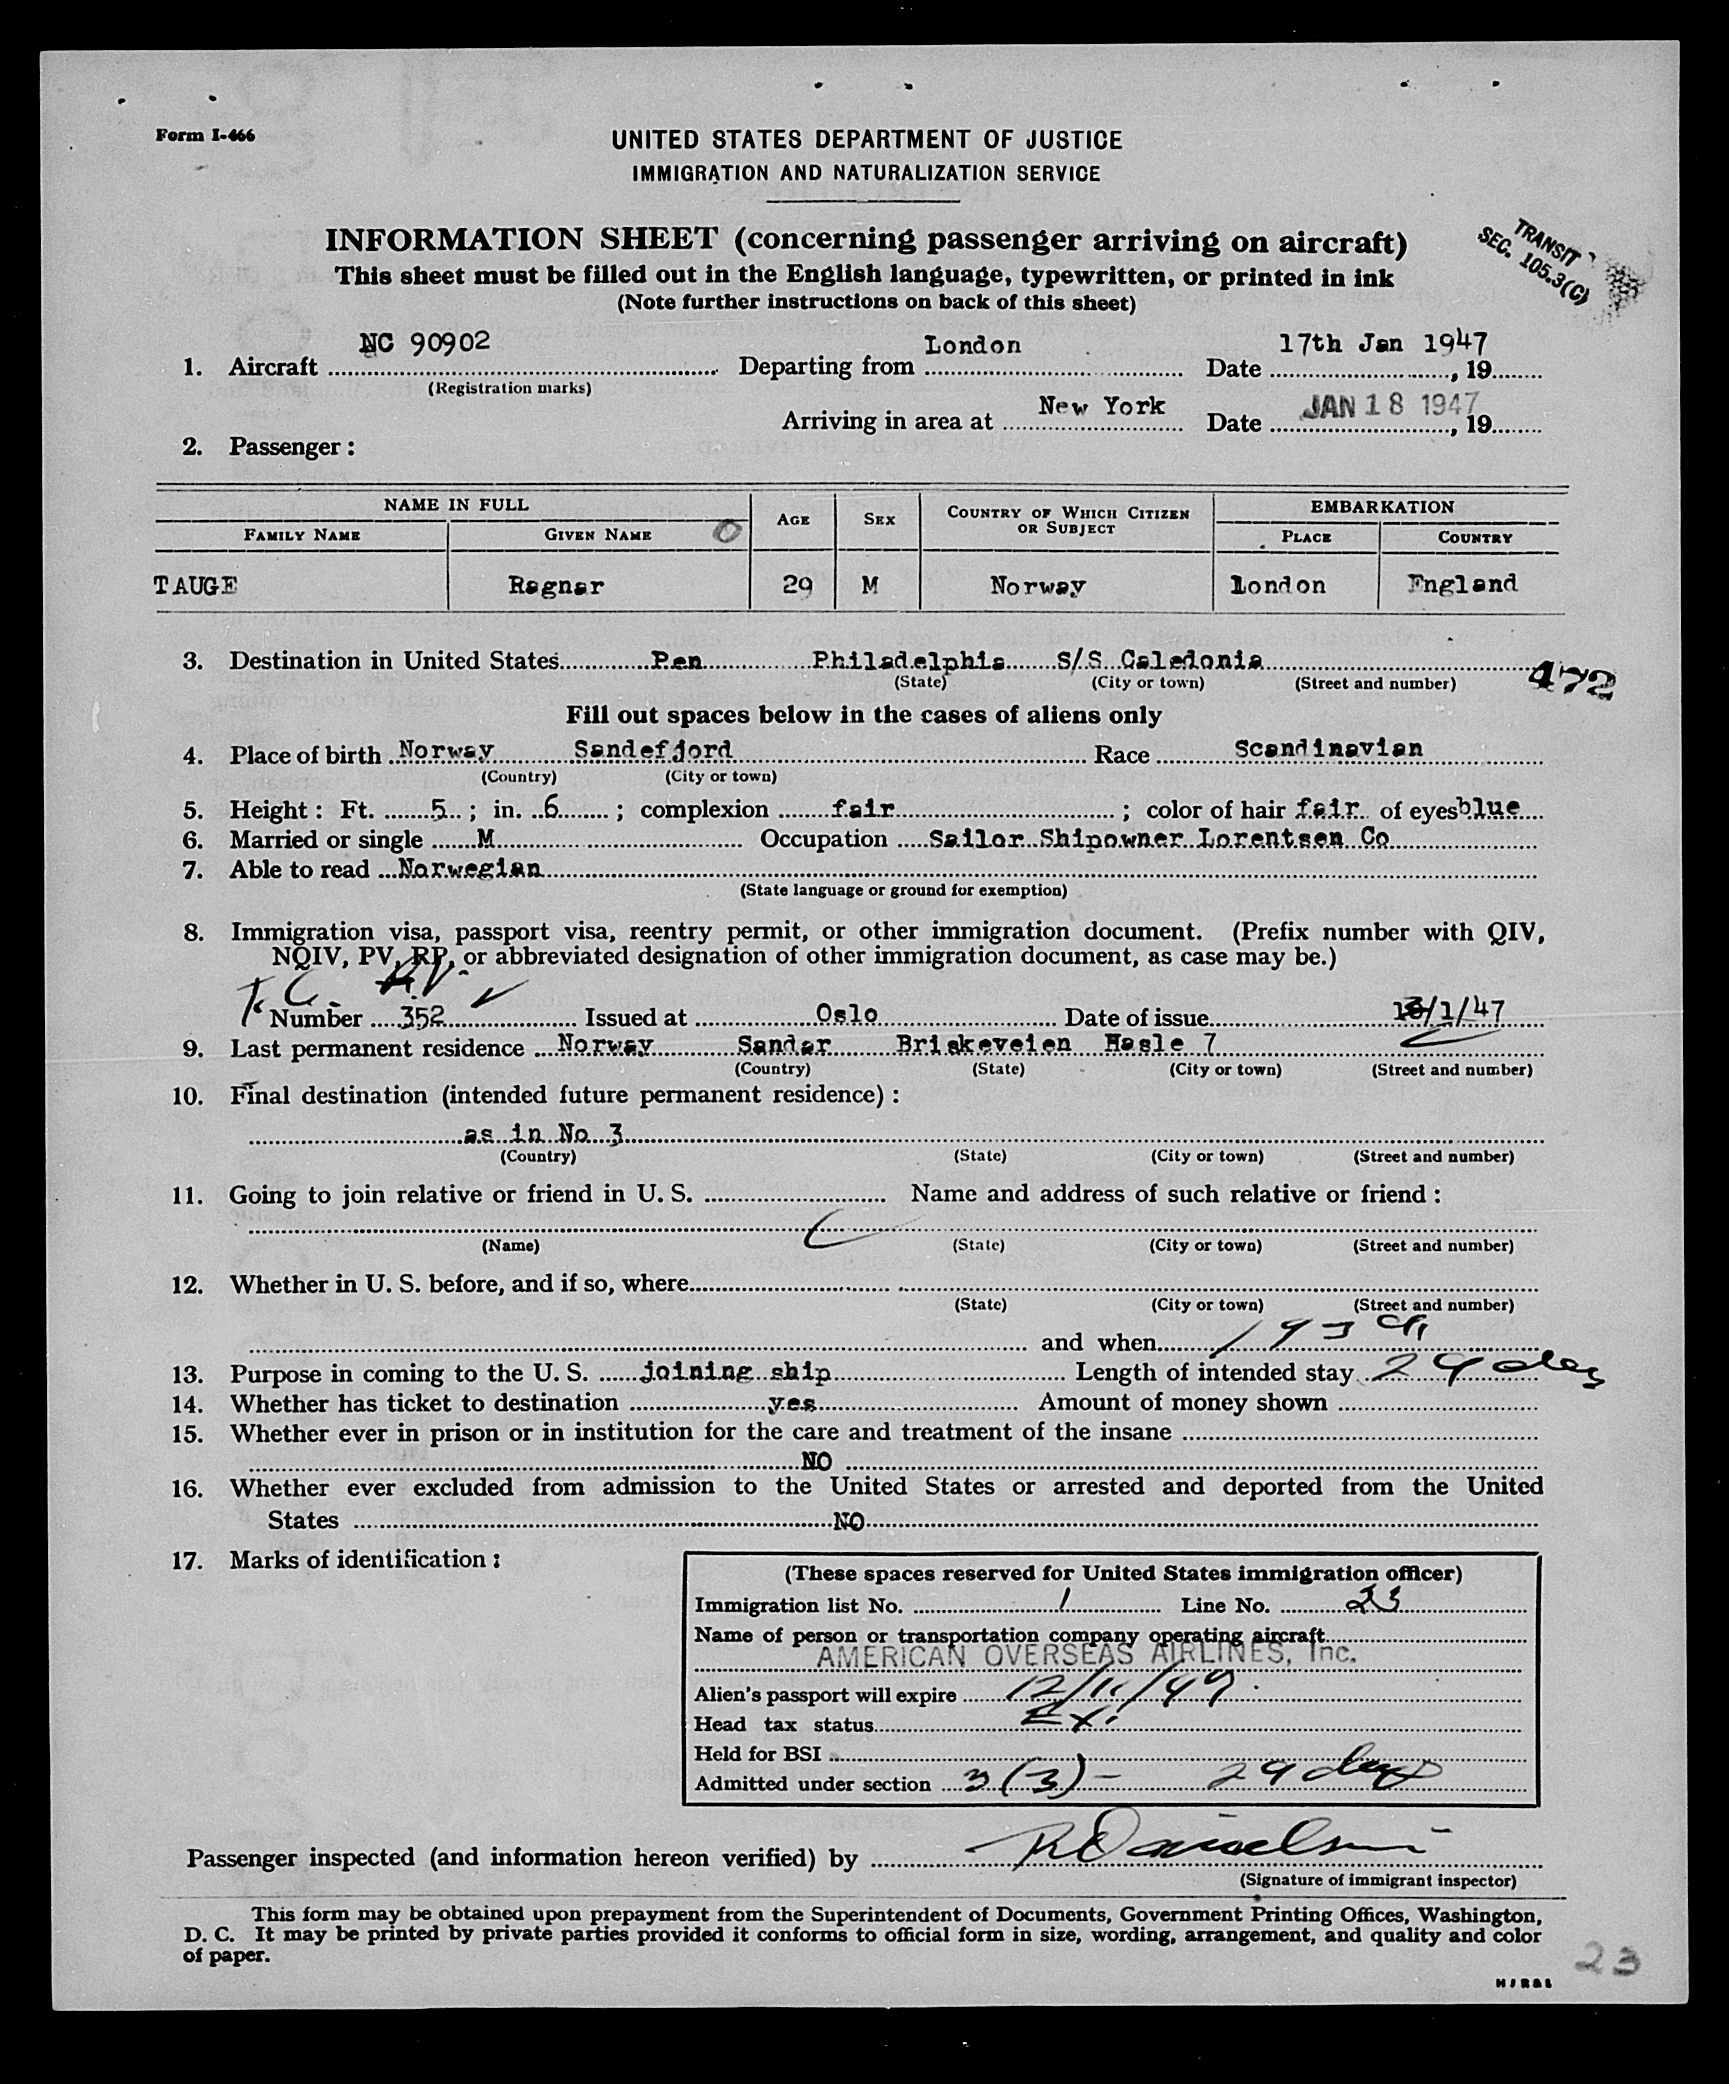 Form I-466
UNITED STATES DEPARTMENT OF JUSTICE
IMMIGRATION AND NATURALIZATION SERVICE
INFORMATION SHEET (concerning passenger arriving on aircraft)
This sheet must be filled out in the English language, typewritten, or printed in ink
(Note further instructions on back of this sheet)
TRANSIT
SEC. 105.3(C)
1. Aircraft NC 90902 Departing from London Date 17th Jan 1947, 19
(Registration marks)
Arriving in area at New York Date JAN 18 1947, 19
2. Passenger:
NAME IN FULL AGE SEX COUNTRY OF WHICH CITIZEN OR SUBJECT EMBARKATION
FAMILY NAME GIVEN NAME PLACE COUNTRY
TAUGE Ragnar 29 M Norway London England
3. Destination in United States Pen Philadelphia S/S Caledonia
(State) (City or town) (Street and number)
472
Fill out spaces below in the cases of aliens only
4. Place of birth Norway Sandefjord Race Scandinavian
(Country) (City or town)
5. Height: Ft. 5 ; in. 6 ; complexion fair ; color of hair fair of eyes blue
6. Married or single M Occupation Sailor Shipowner Lorentsen Co
7. Able to read Norwegian
(State language or ground for exemption)
8. Immigration visa, passport visa, reentry permit, or other immigration document. (Prefix number with QIV,
NQIV, PV, RP, or abbreviated designation of other immigration document, as case may be.)
Number 352 Issued at Oslo Date of issue 13/1/47
9. Last permanent residence Norway Sandar Briskeveien Hasle 7
(Country) (State) (City or town) (Street and number)
10. Final destination (intended future permanent residence):
as in No 3
(Country) (State) (City or town) (Street and number)
11. Going to join relative or friend in U. S. Name and address of such relative or friend:
(Name) (State) (City or town) (Street and number)
12. Whether in U. S. before, and if so, where
(State) (City or town) (Street and number)
and when 1939
13. Purpose in coming to the U. S. joining ship Length of intended stay 29 days
14. Whether has ticket to destination yes Amount of money shown
15. Whether ever in prison or in institution for the care and treatment of the insane
NO
16. Whether ever excluded from admission to the United States or arrested and deported from the United
States NO
17. Marks of identification:
(These spaces reserved for United States immigration officer)
Immigration list No. 1 Line No. 23
Name of person or transportation company operating aircraft
AMERICAN OVERSEAS AIRLINES, Inc.
Alien's passport will expire 12/11/49
Head tax status Ex.
Held for BSI
Admitted under section 3(3) - 29 days
Passenger inspected (and information hereon verified) by
(Signature of immigrant inspector)
This form may be obtained upon prepayment from the Superintendent of Documents, Government Printing Offices, Washington,
D. C. It may be printed by private parties provided it conforms to official form in size, wording, arrangement, and quality and color
of paper.
23